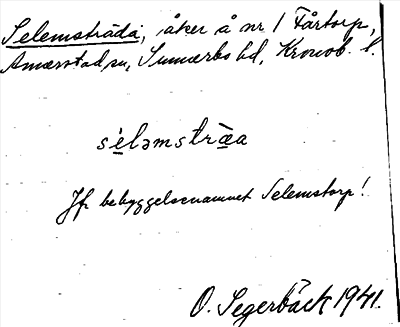 Selemsträda, åker å nr 1 Fårtorp,
Annerstad sn, Sunnerbo hd, Kronob. l.
sèlǝmstræ̀a
Jfr bebyggelsenamnet Selemstorp!
O. Segerbäck 1941.